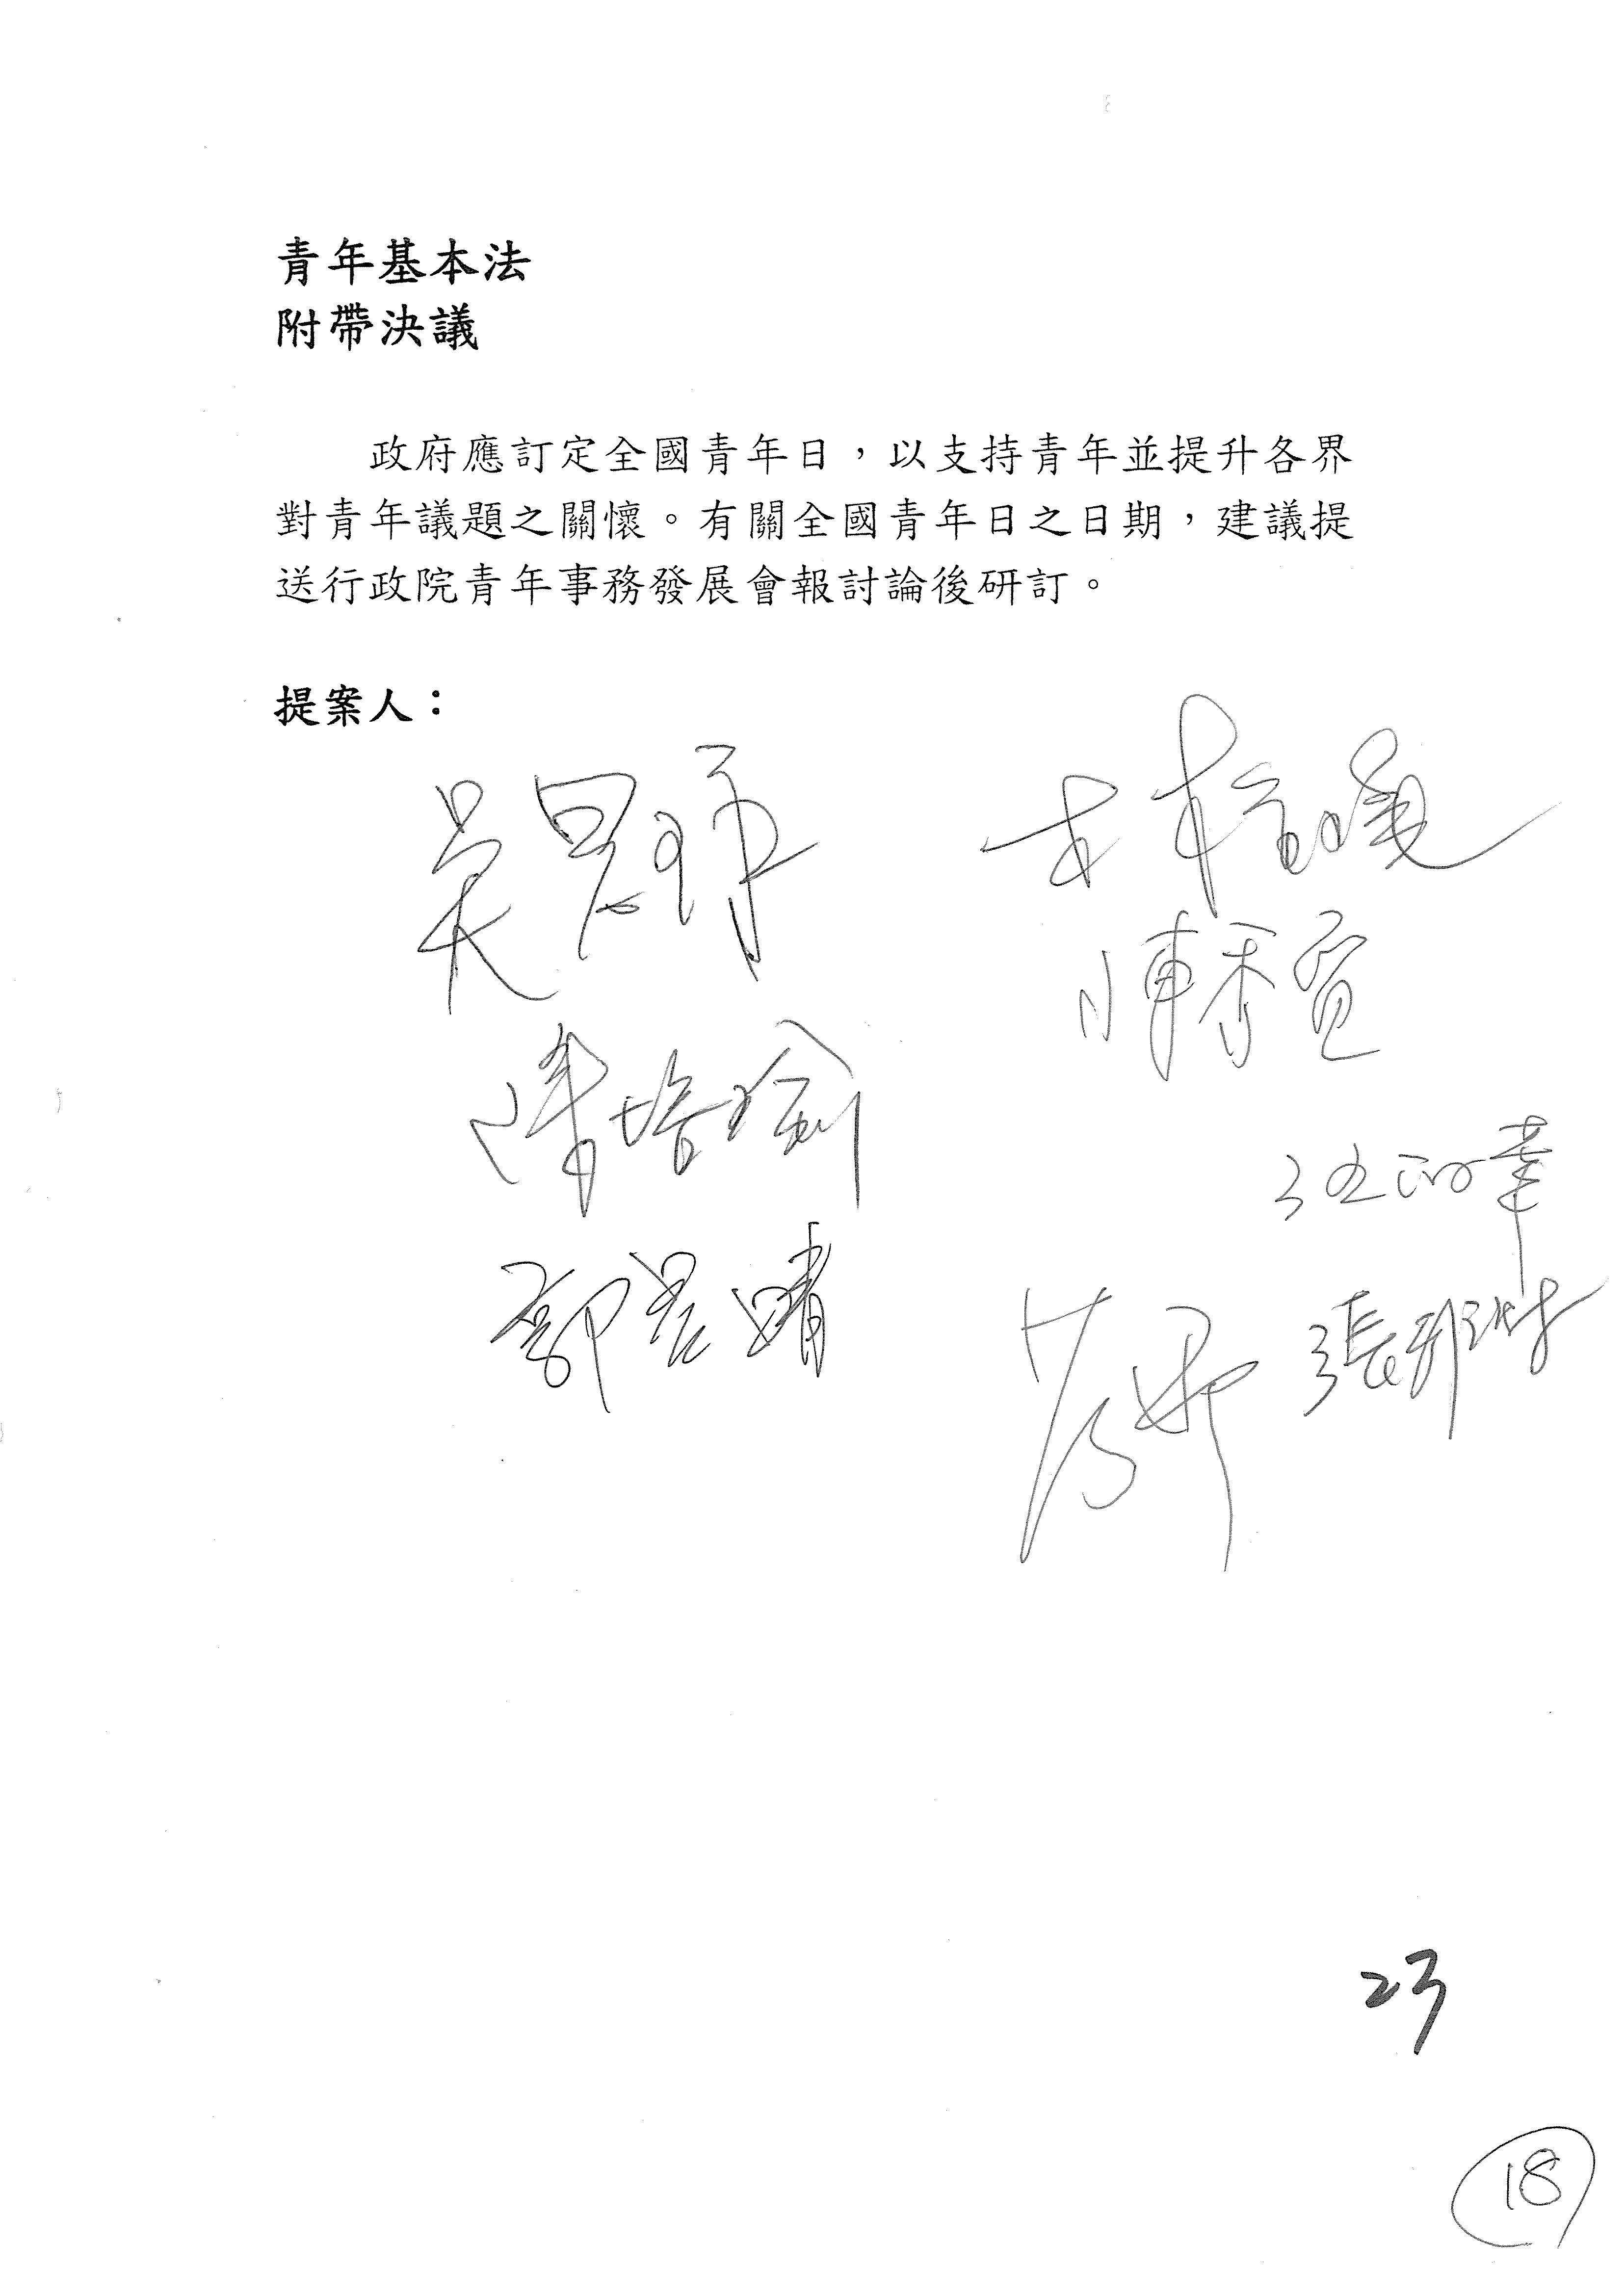 青年基本法
附帶決議
政府應訂定全國青年日，以支持青年並提升各界
對青年議題之關懷。有關全國青年日之日期，建議提
送行政院青年事務發展會報討論後研訂。
提案人：
吳思瑤
陳培瑜
陳秀寳
郭昱晴
張雅琳
23
18